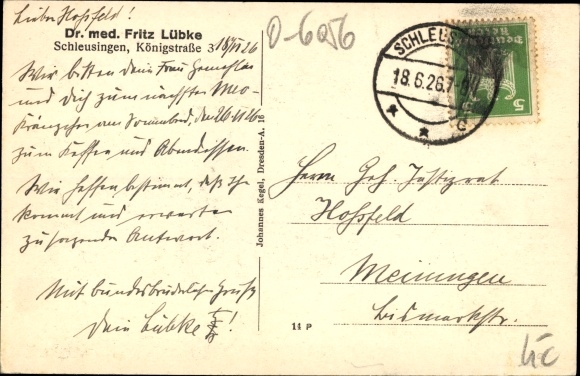 Lieber Hoßfeld!
Dr. med. Fritz Lübke
Schleusingen, Königstraße 3
18/VI 26
Wir bitten deine Frau Gemahlin
und dich zum nächsten
Kränzchen am Sonnabend, den 26.VI 26
zum Kaffee und Abendessen.
Wir hoffen bestimmt, daß Ihr
kommt und erwarten
zusagende Antwort.
Mit bundesbrüderlichem Gruß
Dein Lübke
O-6056
SCHLEUSINGEN
18.6.26.7-8V
* * c
Deutsches Reich
5 5
Herrn Geh. Justizrat
Hoßfeld
Meiningen
Bismarckstr.
Johannes Kegel, Dresden-A. 16
14 P